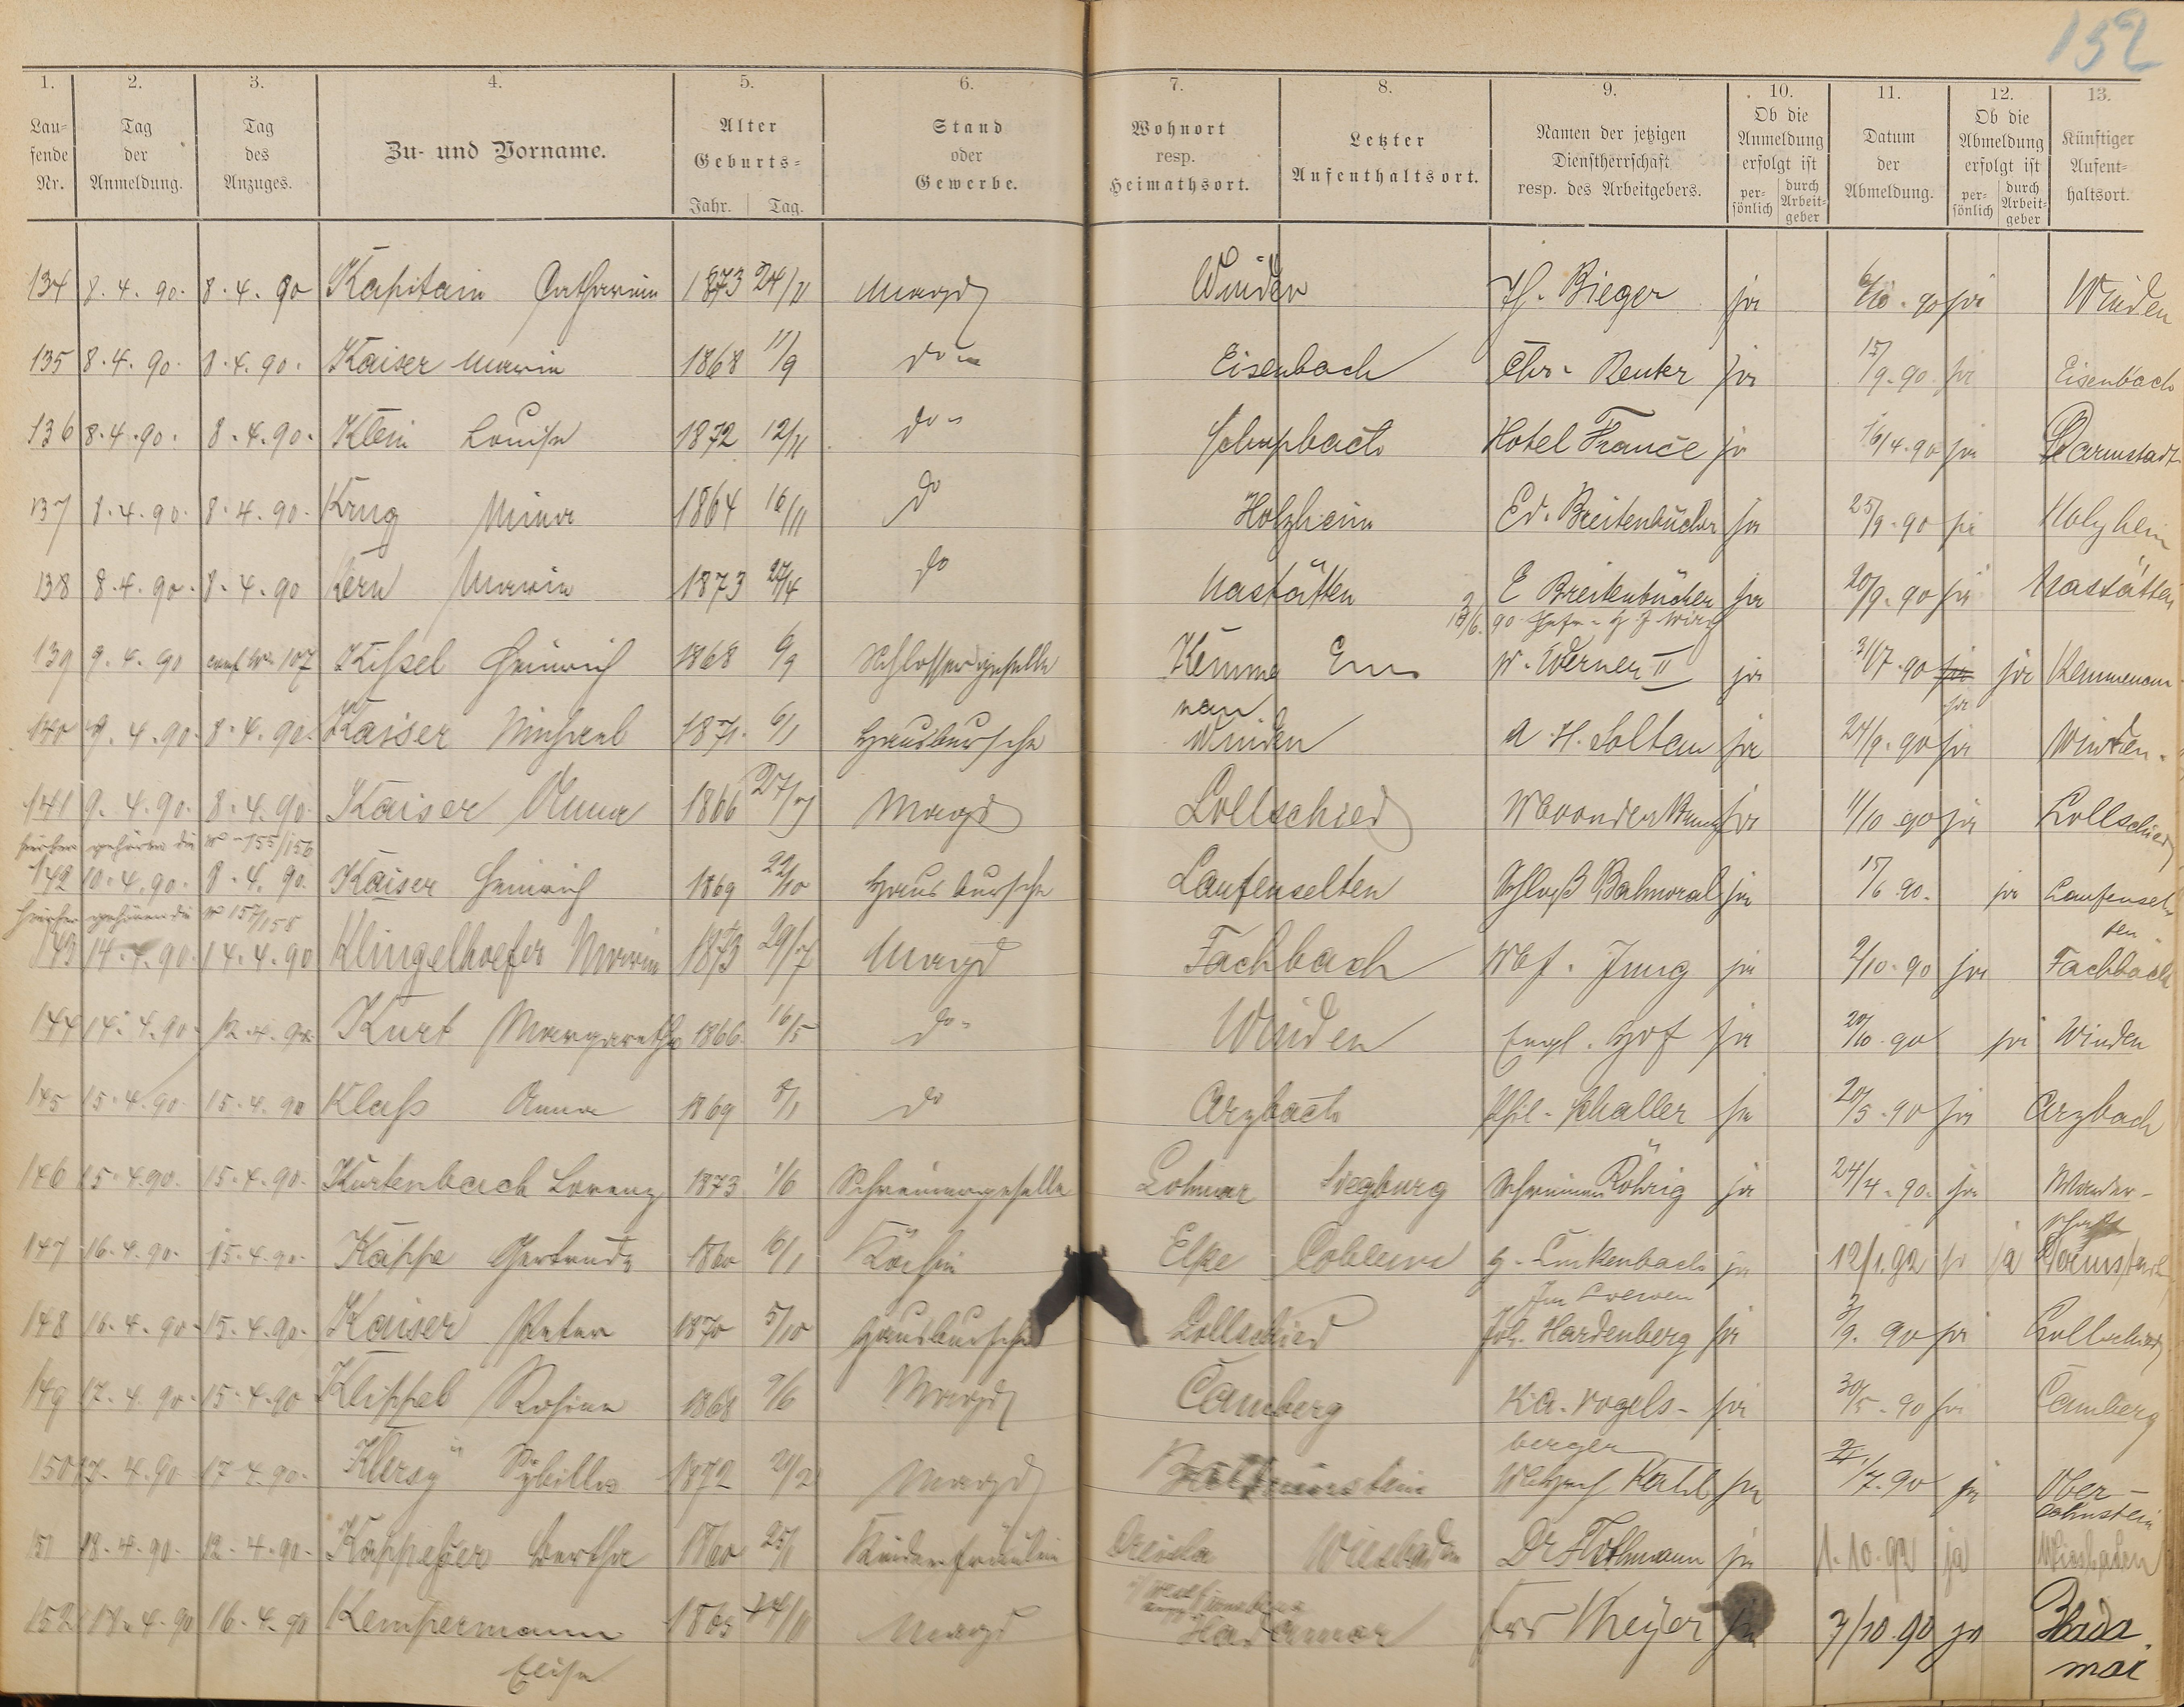 152
1. 2. 3. 4. 5. 6. 7. 8. 9. 10. 11. 12. 13.
Lau-
fende
Nr.
Tag
der
Anmeldung.
Tag
des
Anzuges.
Zu- und Vorname.
Alter
Geburts-
Jahr. Tag.
Stand
oder
Gewerbe.
Wohnort
resp.
Heimathsort.
Letzter
Aufenthaltsort.
Namen der jetzigen
Dienstherrschaft
resp. des Arbeitgebers.
Ob die
Anmeldung
erfolgt ist
per-
sönlich
durch
Arbeit-
geber
Datum
der
Abmeldung.
Ob die
Abmeldung
erfolgt ist
per-
sönlich
durch
Arbeit-
geber
Künftiger
Aufent-
haltsort.
134 8.4.90. 8.4.90 Kapitain Catharina 1873 24/11 Magd Winden Bieger ja 6/10.90 ja Winden
135 8.4.90. 8.4.90. Kaiser Maria 1868 11/9 do Eisenbach Chr. Reuter ja 15/9.90. ja Eisenbach
136 8.4.90. 8.4.90. Klein Louise 1872 12/11 do Hotel France ja 16/4.90 ja Darmstadt
137 8.4.90. 8.4.90. Krug Mina 1864 16/11 do Holzheim Ed. Breitenbücher ja 25/9.90 ja Holzheim
138 8.4.90. 8.4.90 Kern Maria 1873 27/4 do Nastätten E Breitenbücher ja 20/9.90 ja Nastätten
139 9.4.90 107 Kissel Heinrich 1868 6/9 Schlossergeselle Kemme Ems W. Werner II ja 31/7.90 ja Kemmenau
nau
140 9.4.90. 8.4.90. Kaiser Michael 1871. 6/1 Hausbursche Winden A. H. Soltau ja 24/9.90 ja Winden.
141 9.4.90. 8.4.90. Kaiser Anna 1866 27/7 Magd Lollschied ja 11/10 90 ja Lollschied
hierher gehören die No 155/156
142 10.4.90. 8.4.90. Kaiser Heinrich 1869 22/10 Hausbursche Laufenselten Schloß Balmoral ja 15/6 90. ja Laufensel-
ten
hierher gehören die No 157/158
143 14.4.90. 14.4.90 Klingelhoefer Maria 1873 29/7 Magd Fachbach Jung ja 2/10.90 ja Fachbach
144 14.4.90. 12.4.90. Kurt Margarethe 1866. 16/5 do Winden Engl. Hof ja 20/10.90 ja Winden
145 15.4.90. 15.4.90 Klaß Anna 1869 5/1 do Arzbach Phil. Schaller ja 20/5.90 ja Arzbach
146 15.4.90. 15.4.90. Kurtenbach Lorenz 1873 1/6 Schreinergeselle Lohmar Siegburg Schreiner Röhrig ja 24/4.90. ja Wander-
schaft
147 16.4.90. 15.4.90. Kappe Gertrude 1860 6/1 Köchin Elpe Coblenz Linkenbach ja 12/1.92 ja Darmstadt
148 16.4.90. 15.4.90. Kaiser Peter 1870 5/10 Hausbursche Lollschied Joh. Hardenberg ja 3/9.90 ja Lollschied
149 17.4.90. 15.4.90 Klippel Rosina 1868 7/6 Magd Camberg K.A. Vogels- ja 30/5.90 ja Camberg
berger
150 17.4.90 17.4.90. Sybilla 1872 21/2 Magd Kahl ja /7.90 ja Ober-
lahnstein
151 18.4.90. 12.4.90. Bertha 1860 25/1 Kinderfräulein Wiesbaden Dr Flothmann ja 1.10.92 ja Wiesbaden
152 18.4.90 16.4.90 Kempermann 1865 24/11 Magd Hadamar Meyer ja 7/10.90 ja Hada
mar
Elise